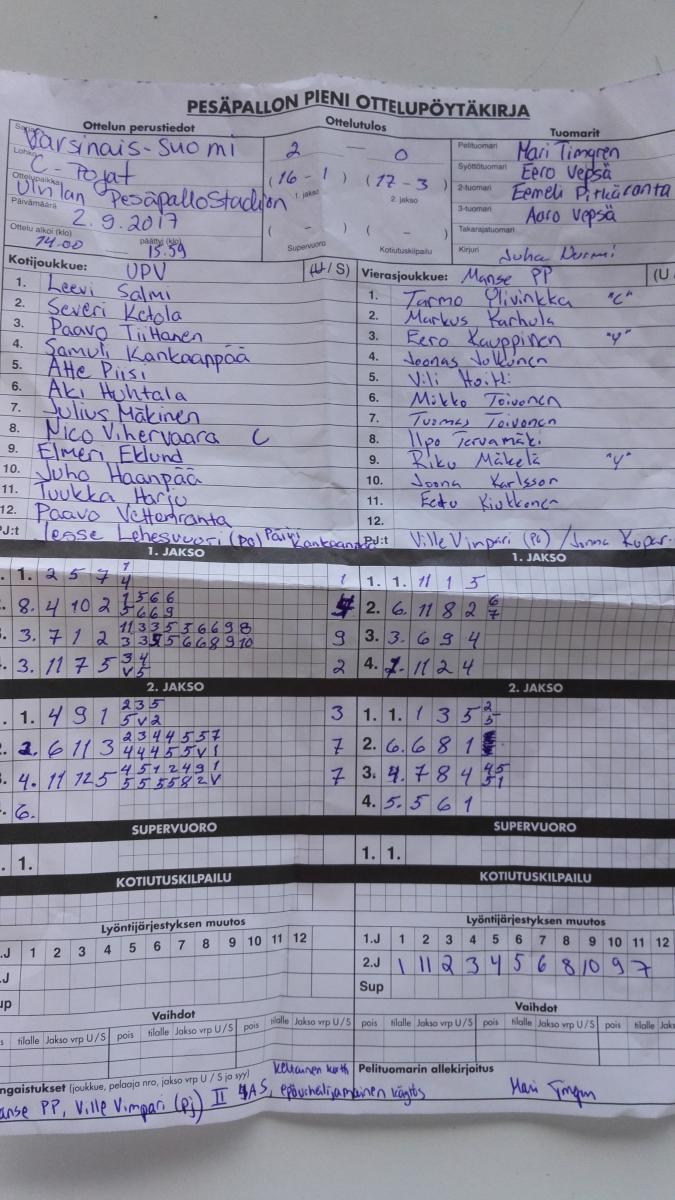 PESÄPALLON PIENI OTTELUPÖYTÄKIRJA
Ottelun perustiedot
Ottelutulos
Tuomarit
Varsinais-Suomi
Lohko
C-Pojat
Ottelupaikka
Ulvilan Pesäpallostadion
Päivämäärä
2.9.2017
Ottelu alkoi (klo)
päättyi (klo)
14.00 — 15.59
2 — 0
(16 - 1) (17 - 3)
1. jakso 2. jakso
( - ) ( - )
Supervuoro Kotiutuskilpailu
Pelituomari Mari Timgren
Syöttötuomari Eero Vepsä
2-tuomari Eemeli Pitkäranta
3-tuomari Aaro Vepsä
Takarajatuomari
Kirjuri Juha Nurmi
Kotijoukkue: UPV (U / S)
1. Leevi Salmi
2. Severi Ketola
3. Paavo Tiittanen
4. Samuli Kankaanpää
5. Atte Piisi
6. Aki Huhtala
7. Julius Mäkinen
8. Nico Vihervaara C
9. Elmeri Eklund
10. Juho Haanpää
11. Tuukka Harju
12. Paavo Vettenranta
PJ:t Jesse Lehesvuori (PJ) Päivi Kankaanpää
Vierasjoukkue: Manse PP (U
1. Tarmo Ylivinkka "C"
2. Markus Karhula
3. Eero Kauppinen "Y"
4. Joonas Julkunen
5. Vili
6. Mikko Toivonen
7. Tuomas Toivonen
8. Ilpo Tervamäki
9. Riku Mäkelä "Y"
10. Joona Karlsson
11. Eetu Kiukkonen
12.
PJ:t Ville Vimpari (PJ) / Jonna
1. JAKSO
1. 2 5 7 1
4
1
8. 4 10 2 1 5 6 6
5 6 6 9
3. 7 1 2 11 3 3 5 5 6 6 9 8
3 3 5 5 6 6 8 9 10
9
3. 11 7 5 3 4
V 5
2
1. JAKSO
1. 1. 11 1 5
2. 6. 11 8 2 6
7
3. 3. 6 9 4
4. 1. 11 2 4
2. JAKSO
1. 4 9 1 2 3 5
5 V 2
3
2. 6 11 3 2 3 4 4 5 5 7
4 4 4 5 5 V 1
7
4. 11 12 5 4 5 1 2 4 9 1
5 5 5 5 8 2 V
7
6.
2. JAKSO
1. 1. 1 3 5 2
5
2. 6. 6 8 1
3. 4. 7 8 4 4 5
5 1
4. 5. 5 6 1
SUPERVUORO
1.
SUPERVUORO
1. 1.
KOTIUTUSKILPAILU
KOTIUTUSKILPAILU
Lyöntijärjestyksen muutos
.J 1 2 3 4 5 6 7 8 9 10 11 12
.J
up
Lyöntijärjestyksen muutos
1.J 1 2 3 4 5 6 7 8 9 10 11 12
2.J 1 11 2 3 4 5 6 8 10 9 7
Sup
Vaihdot
s tilalle Jakso vrp U / S pois tilalle Jakso vrp U / S pois tilalle Jakso vrp U / S
Vaihdot
pois tilalle Jakso vrp U / S pois tilalle Jakso vrp U / S pois tilalle Jaks
ngaistukset (joukkue, pelaaja nro, jakso vrp U / S ja syy)
anse PP, Ville Vimpari (PJ) II 4AS, Keltainen kortti
epäurheilijamainen käytös
Pelituomarin allekirjoitus
Mari Timgren